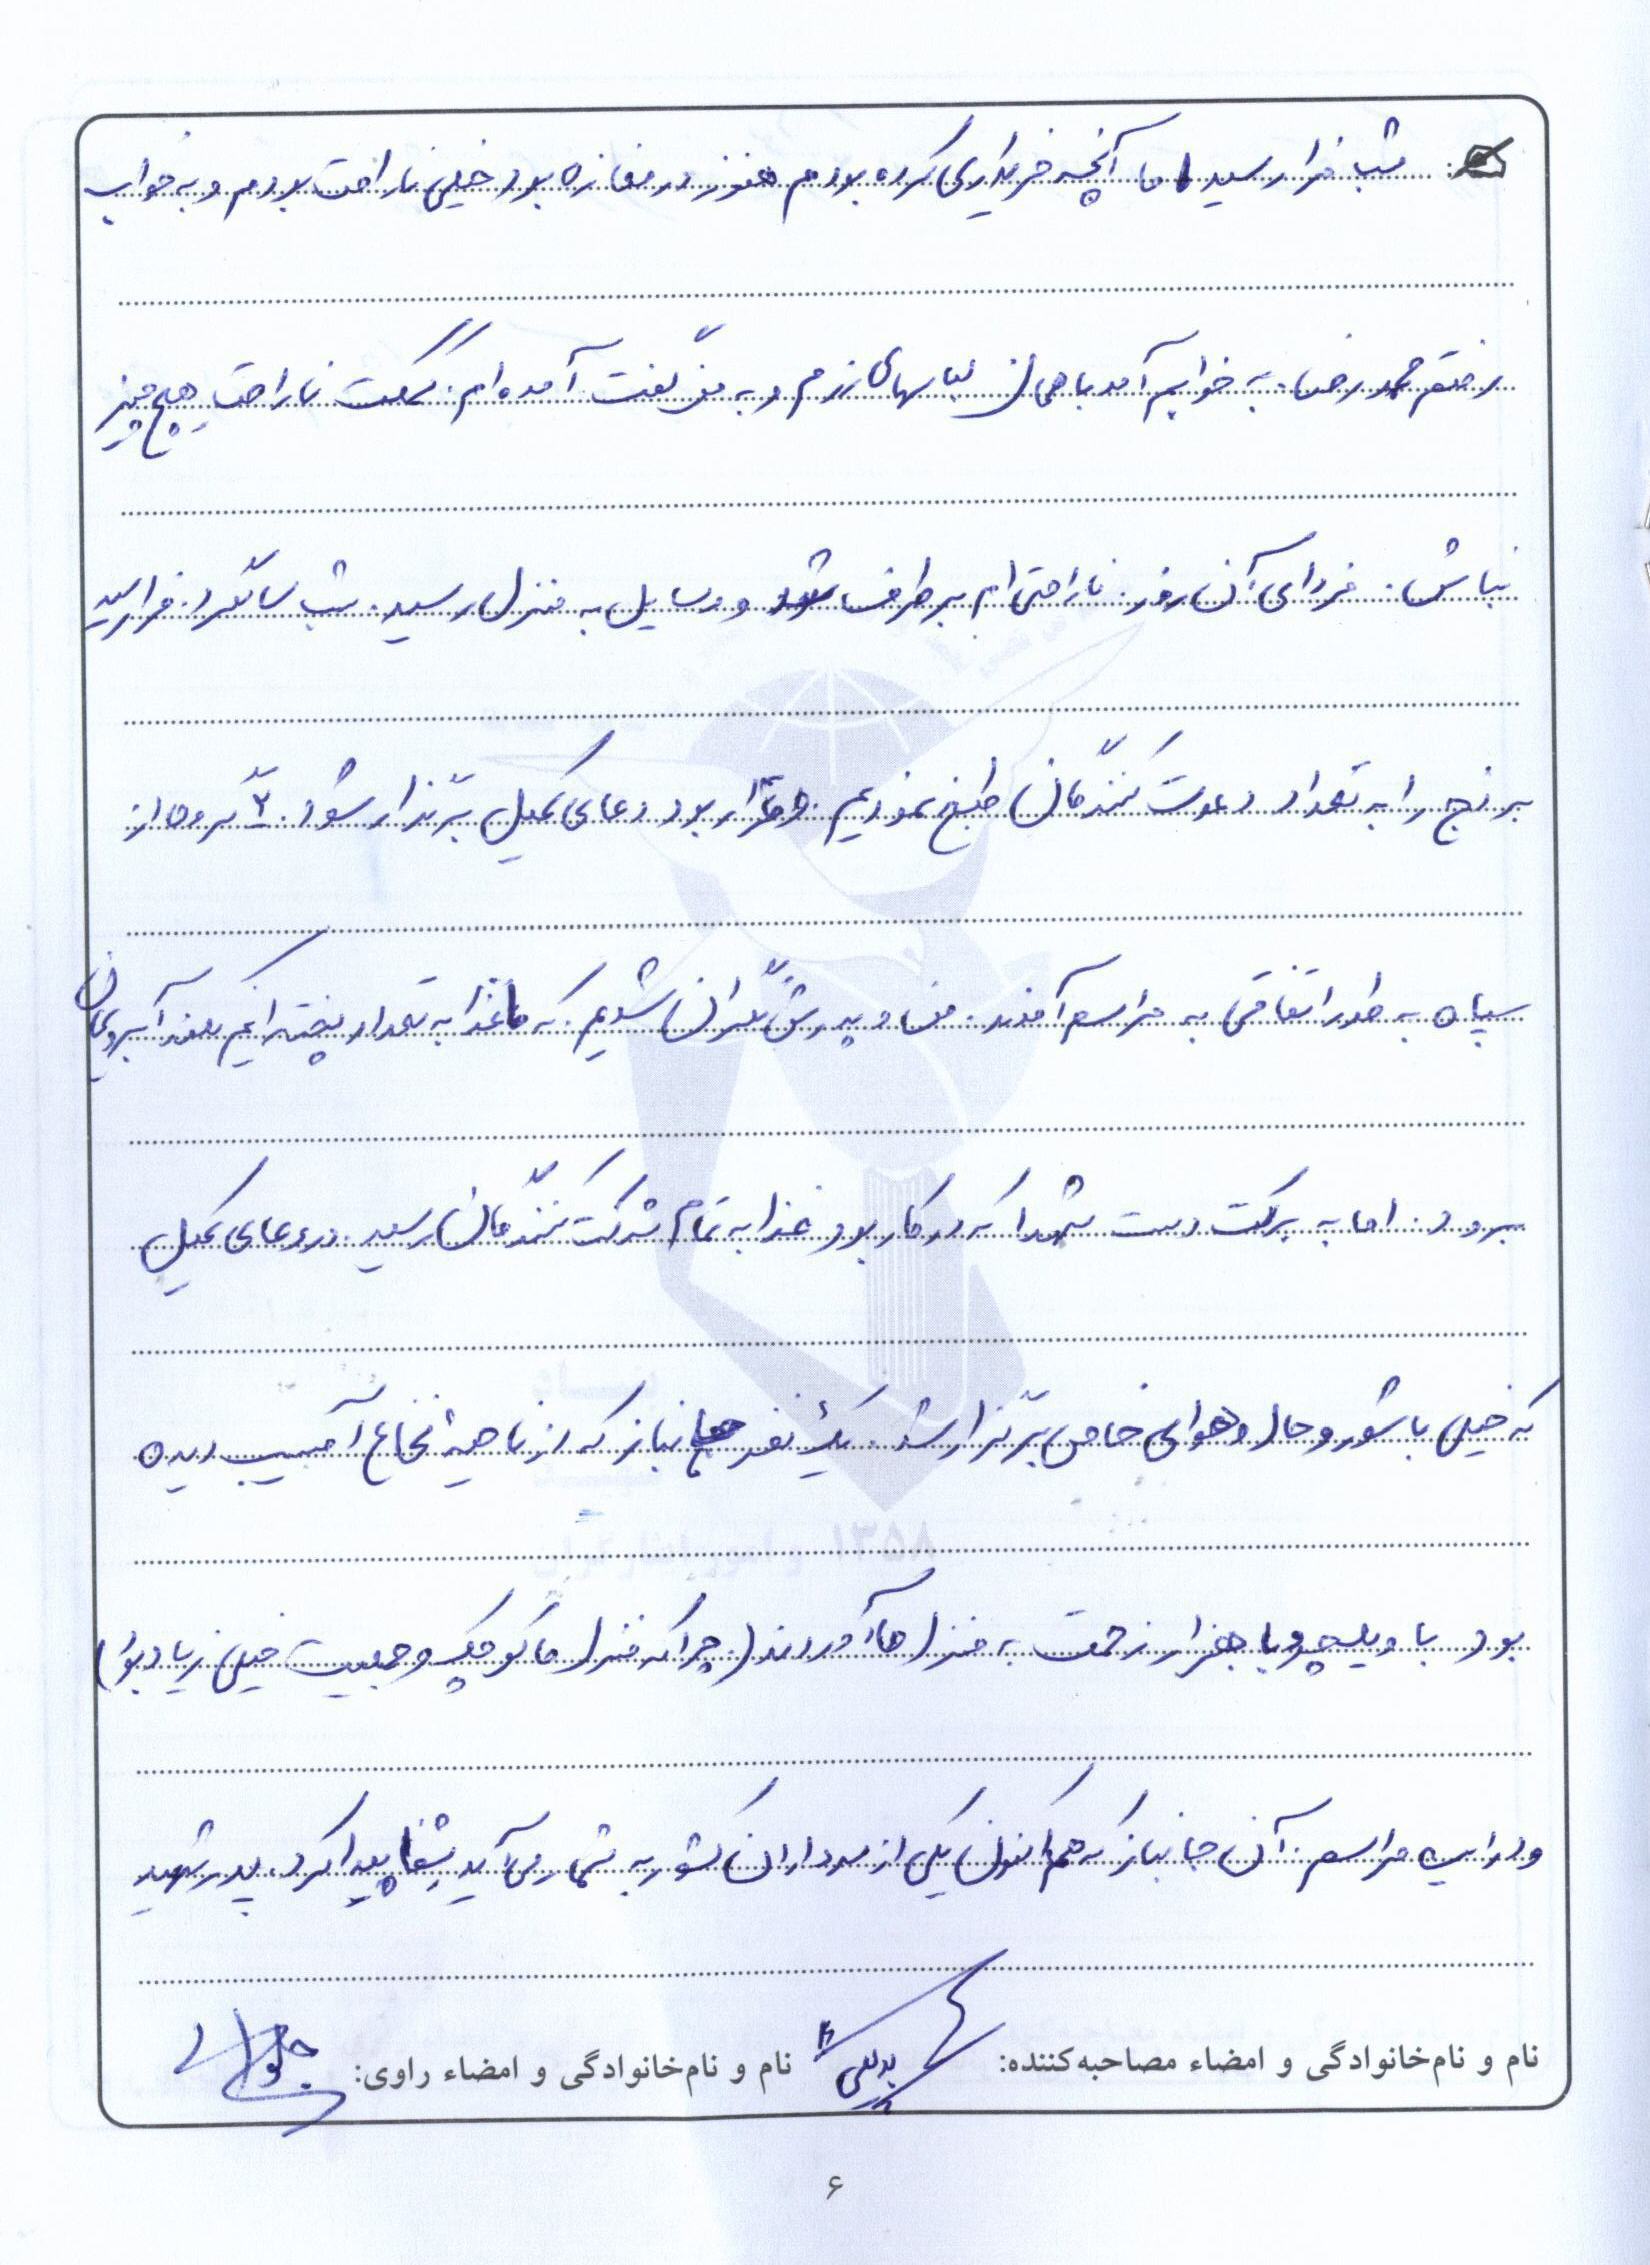 شب فرا رسید اما آنچه خریداری کرده بودم هنوز در مغازه بود خیلی ناراحت بودم و به خواب
رفتم محمدرضا به خوابم آمد با همان لباسهای رزم و به من گفت آمده‌ام. گفت ناراحت هیچ چیز
نباش. فردای آن روز ناراحتی‌ام برطرف شد و وسایل به منزل رسید. شب سالگرد فرا رسید
برنج را به تعداد دعوت کنندگان طبخ نمودیم. قرار بود دعای کمیل برگزار شود. ۲ گروه از
سپاه به طور اتفاقی به مراسم آمدند. من و پدرش نگران شدیم که ما غذا به تعداد پخته‌ایم نکند آبرویمان
برود. اما به برکت دست شهدا که در کار بود غذا به تمام شرکت کنندگان رسید. در دعای کمیل
که خیلی با شور و حال و هوای خاص برگزار شد. یک نفر جانباز که از ناحیه نخاع آسیب دیده
بود با ویلچر و با هزار زحمت به منزل ما آوردند (چرا که منزل ما کوچک و جمعیت خیلی زیاد بود)
و در این مراسم آن جانباز که هم اکنون یکی از سرداران کشور به شمار می‌آید شفا پیدا کرد. پدر شهید
نام و نام‌خانوادگی و امضاء مصاحبه‌کننده: نام و نام‌خانوادگی و امضاء راوی:
۶
۱۳۵۸